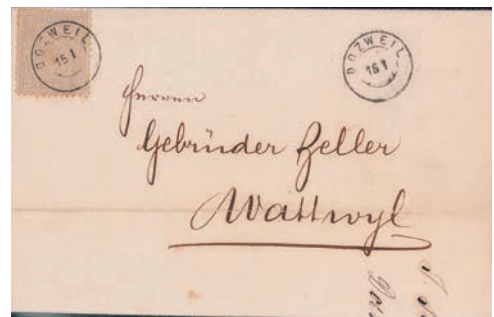 DOZWEIL
15 I
DOZWEIL
15 I
Herren
Gebrüder Zeller
Wattwyl